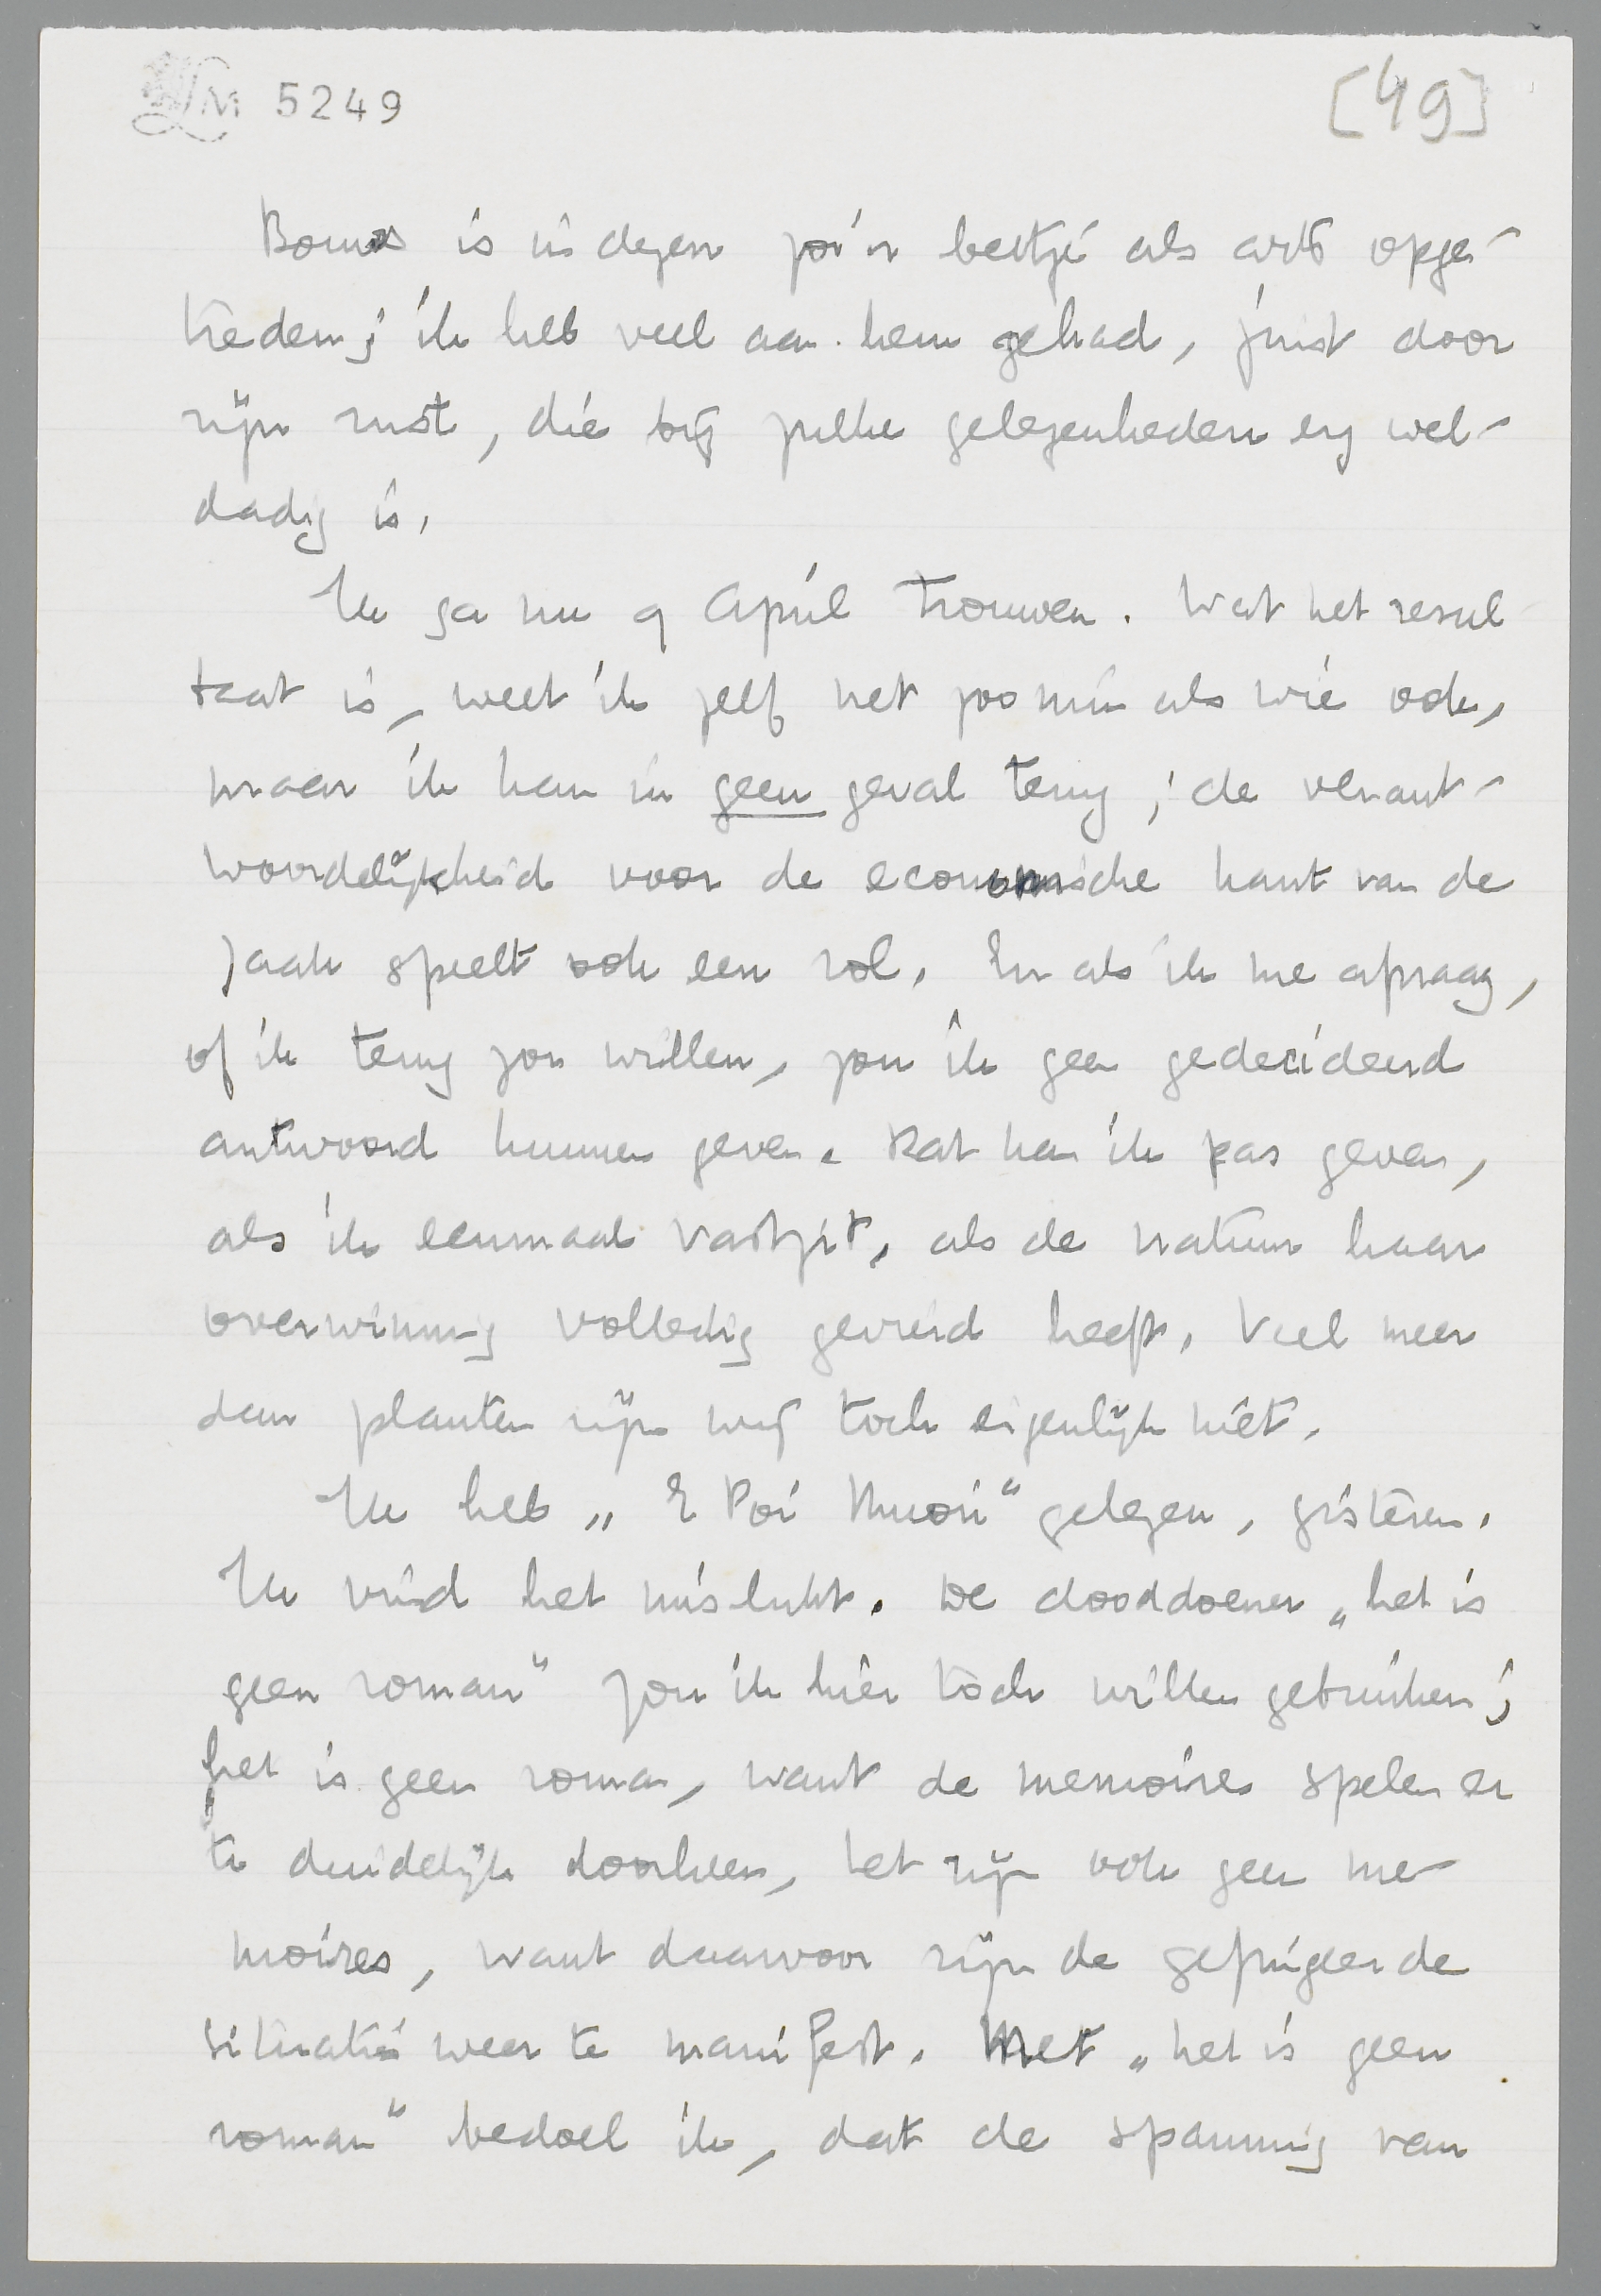 LM 5249
[49]
Bouws is in dezen zoo'n beetje als arts opge-
treden; ik heb veel aan hem gehad, juist door
zijn rust, die bij zulke gelegenheden erg wel-
dadig is.
Ik ga nu 9 April trouwen. Wat het resul
taat is, weet ik zelf net zoo min als wie ook,
maar ik kan in geen geval terug; de verant-
woordelijkheid voor de economische kant van de
zaak speelt ook een rol. En als ik me afvraag,
of ik terug zou willen, zou ik geen gedecideerd
antwoord kunnen geven. Dat kan ik pas geven,
als ik eenmaal vastzit, als de natuur haar
overwinning volledig gevierd heeft. Veel meer
dan planten zijn wij toch eigenlijk niet.
Ik heb „E Poi Muori" gelezen, gisteren.
Ik vind het mislukt. De dooddoener „het is
geen roman" zou ik hier toch willen gebruiken;
het is geen roman, want de memoires spelen er
te duidelijk doorheen, het zijn ook geen me-
moires, want daarvoor zijn de gefingeerde
situaties weer te manifest. Met „het is geen
roman" bedoel ik, dat de spanning van